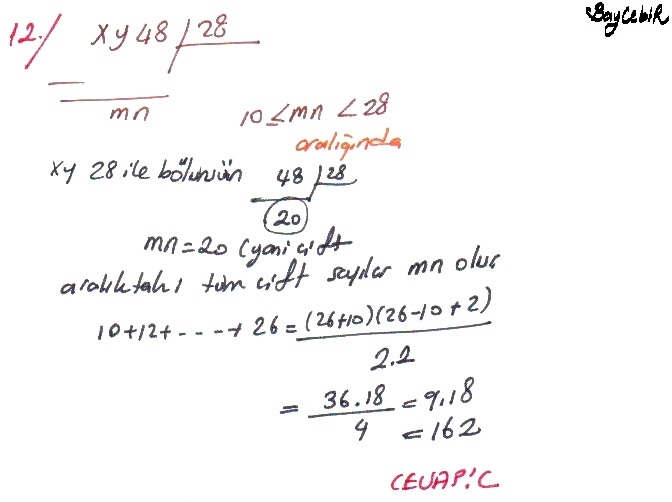 BayCebiR
12./ xy48 | 28
mn
10 ≤ mn < 28
aralığında
xy 28 ile bölünsün 48 | 28
20
mn = 20 (yani çift
aralıktaki tüm çift sayılar mn olur
10+12+----+26 = (26+10)(26-10+2)
2.2
= 36.18 = 9.18
4 = 162
CEVAP: C